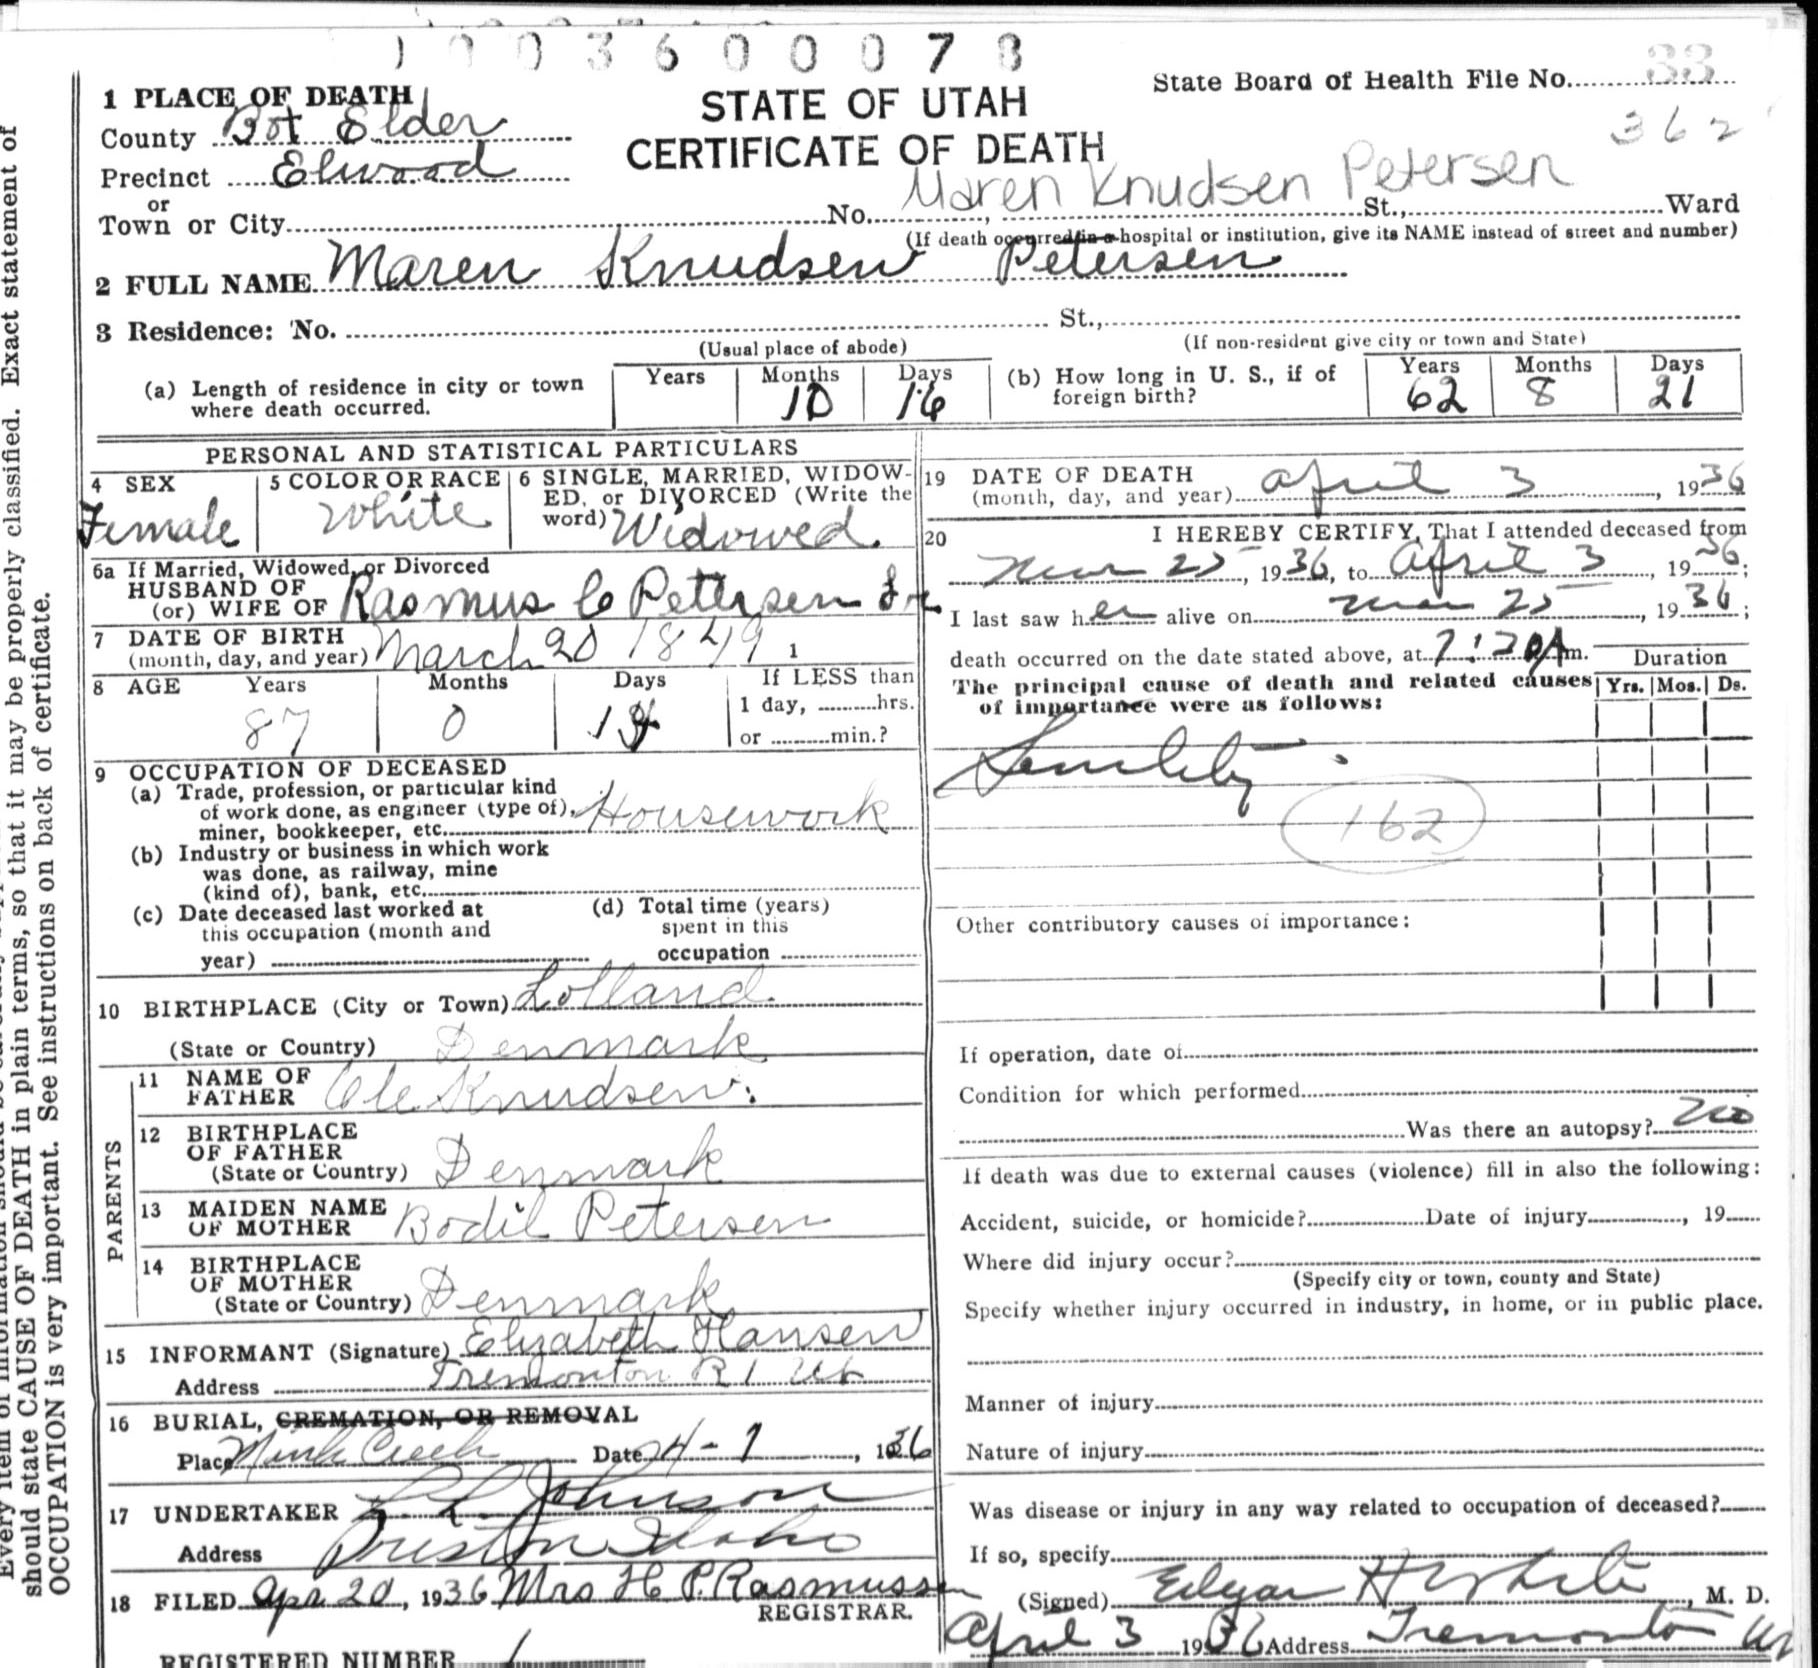 1 0 0 3 6 0 0 0 7 8
State Board of Health File No. 33
362
STATE OF UTAH
CERTIFICATE OF DEATH
1 PLACE OF DEATH
County Box Elder
Precinct Elwood
or
Town or City No. , St., Ward
Maren Knudsen Petersen
(If death occurred in a hospital or institution, give its NAME instead of street and number)
2 FULL NAME Maren Knudsen Petersen
3 Residence: No. St.,
(Usual place of abode) (If non-resident give city or town and State)
(a) Length of residence in city or town where death occurred. Years Months 10 Days 16
(b) How long in U. S., if of foreign birth? Years 62 Months 8 Days 21
PERSONAL AND STATISTICAL PARTICULARS
4 SEX
Female
5 COLOR OR RACE
White
6 SINGLE, MARRIED, WIDOW-
ED, or DIVORCED (Write the
word) Widowed.
6a If Married, Widowed, or Divorced
HUSBAND OF
(or) WIFE OF Rasmus C Petersen Sr.
7 DATE OF BIRTH
(month, day, and year) March 20 1849 1
8 AGE Years Months Days If LESS than
87 0 14 1 day, hrs.
or min.?
9 OCCUPATION OF DECEASED
(a) Trade, profession, or particular kind
of work done, as engineer (type of),
miner, bookkeeper, etc. Housework
(b) Industry or business in which work
was done, as railway, mine
(kind of), bank, etc.
(c) Date deceased last worked at
this occupation (month and
year)
(d) Total time (years)
spent in this
occupation
10 BIRTHPLACE (City or Town) Lolland
(State or Country) Denmark
PARENTS
11 NAME OF
FATHER Ole Knudsen
12 BIRTHPLACE
OF FATHER
(State or Country) Denmark
13 MAIDEN NAME
OF MOTHER Bodil Petersen
14 BIRTHPLACE
OF MOTHER
(State or Country) Denmark
15 INFORMANT (Signature) Elizabeth Hansen
Address Tremonton R 1 Ut
16 BURIAL, CREMATION, OR REMOVAL
Place Mink Creek Date 4-7, 1936
17 UNDERTAKER Johnson
Address Preston Idaho
18 FILED Apr 20, 1936 Mrs H. P. Rasmussen
REGISTRAR.
REGISTERED NUMBER 1
19 DATE OF DEATH
(month, day, and year) April 3, 1936
20 I HEREBY CERTIFY, That I attended deceased from
Mar 25, 1936, to April 3, 1936;
I last saw her alive on Mar 25, 1936;
death occurred on the date stated above, at 7:20 A m.
The principal cause of death and related causes
of importance were as follows:
Duration
Yrs. Mos. Ds.
Senility
162
Other contributory causes of importance:
If operation, date of
Condition for which performed
Was there an autopsy? no
If death was due to external causes (violence) fill in also the following:
Accident, suicide, or homicide? Date of injury , 19
Where did injury occur?
(Specify city or town, county and State)
Specify whether injury occurred in industry, in home, or in public place.
Manner of injury
Nature of injury
Was disease or injury in any way related to occupation of deceased?
If so, specify
(Signed) Edgar H White, M. D.
April 3 1936 Address Tremonton Ut
should state CAUSE OF DEATH in plain terms, so that it may be properly classified. Exact statement of
OCCUPATION is very important. See instructions on back of certificate.